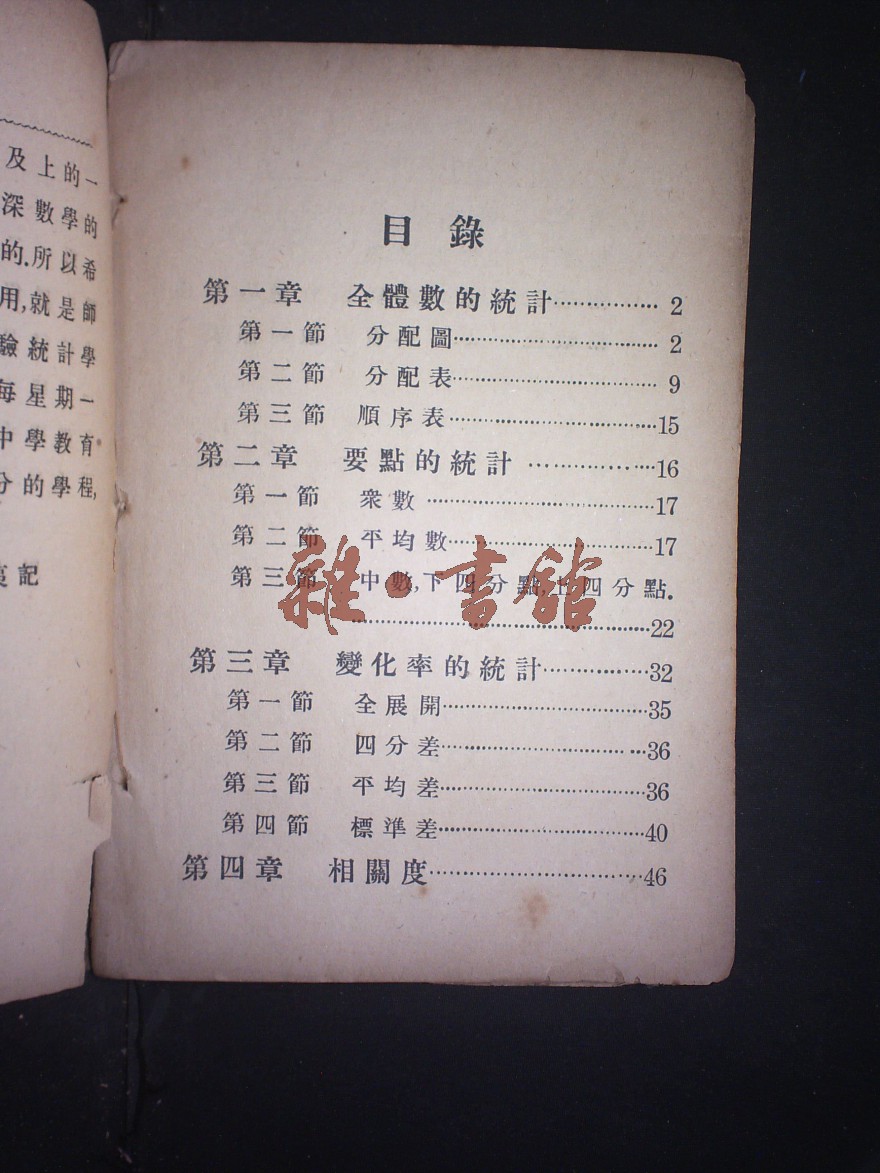 及上的一
深數學的
的.所以希
用,就是師
驗統計學
每星期一
中學教育
分的學程,
記
目錄
第一章 全體數的統計……………… 2
第一節 分配圖……………………………… 2
第二節 分配表……………………………… 9
第三節 順序表………………………………15
第二章 要點的統計 …………………16
第一節 衆數 ………………………………17
第二節 平均數………………………………17
第三節 中數,下四分點,上四分點.
………………………………………………22
第三章 變化率的統計………………32
第一節 全展開………………………………35
第二節 四分差………………………………36
第三節 平均差………………………………36
第四節 標準差………………………………40
第四章 相關度………………………………46
雜·書館